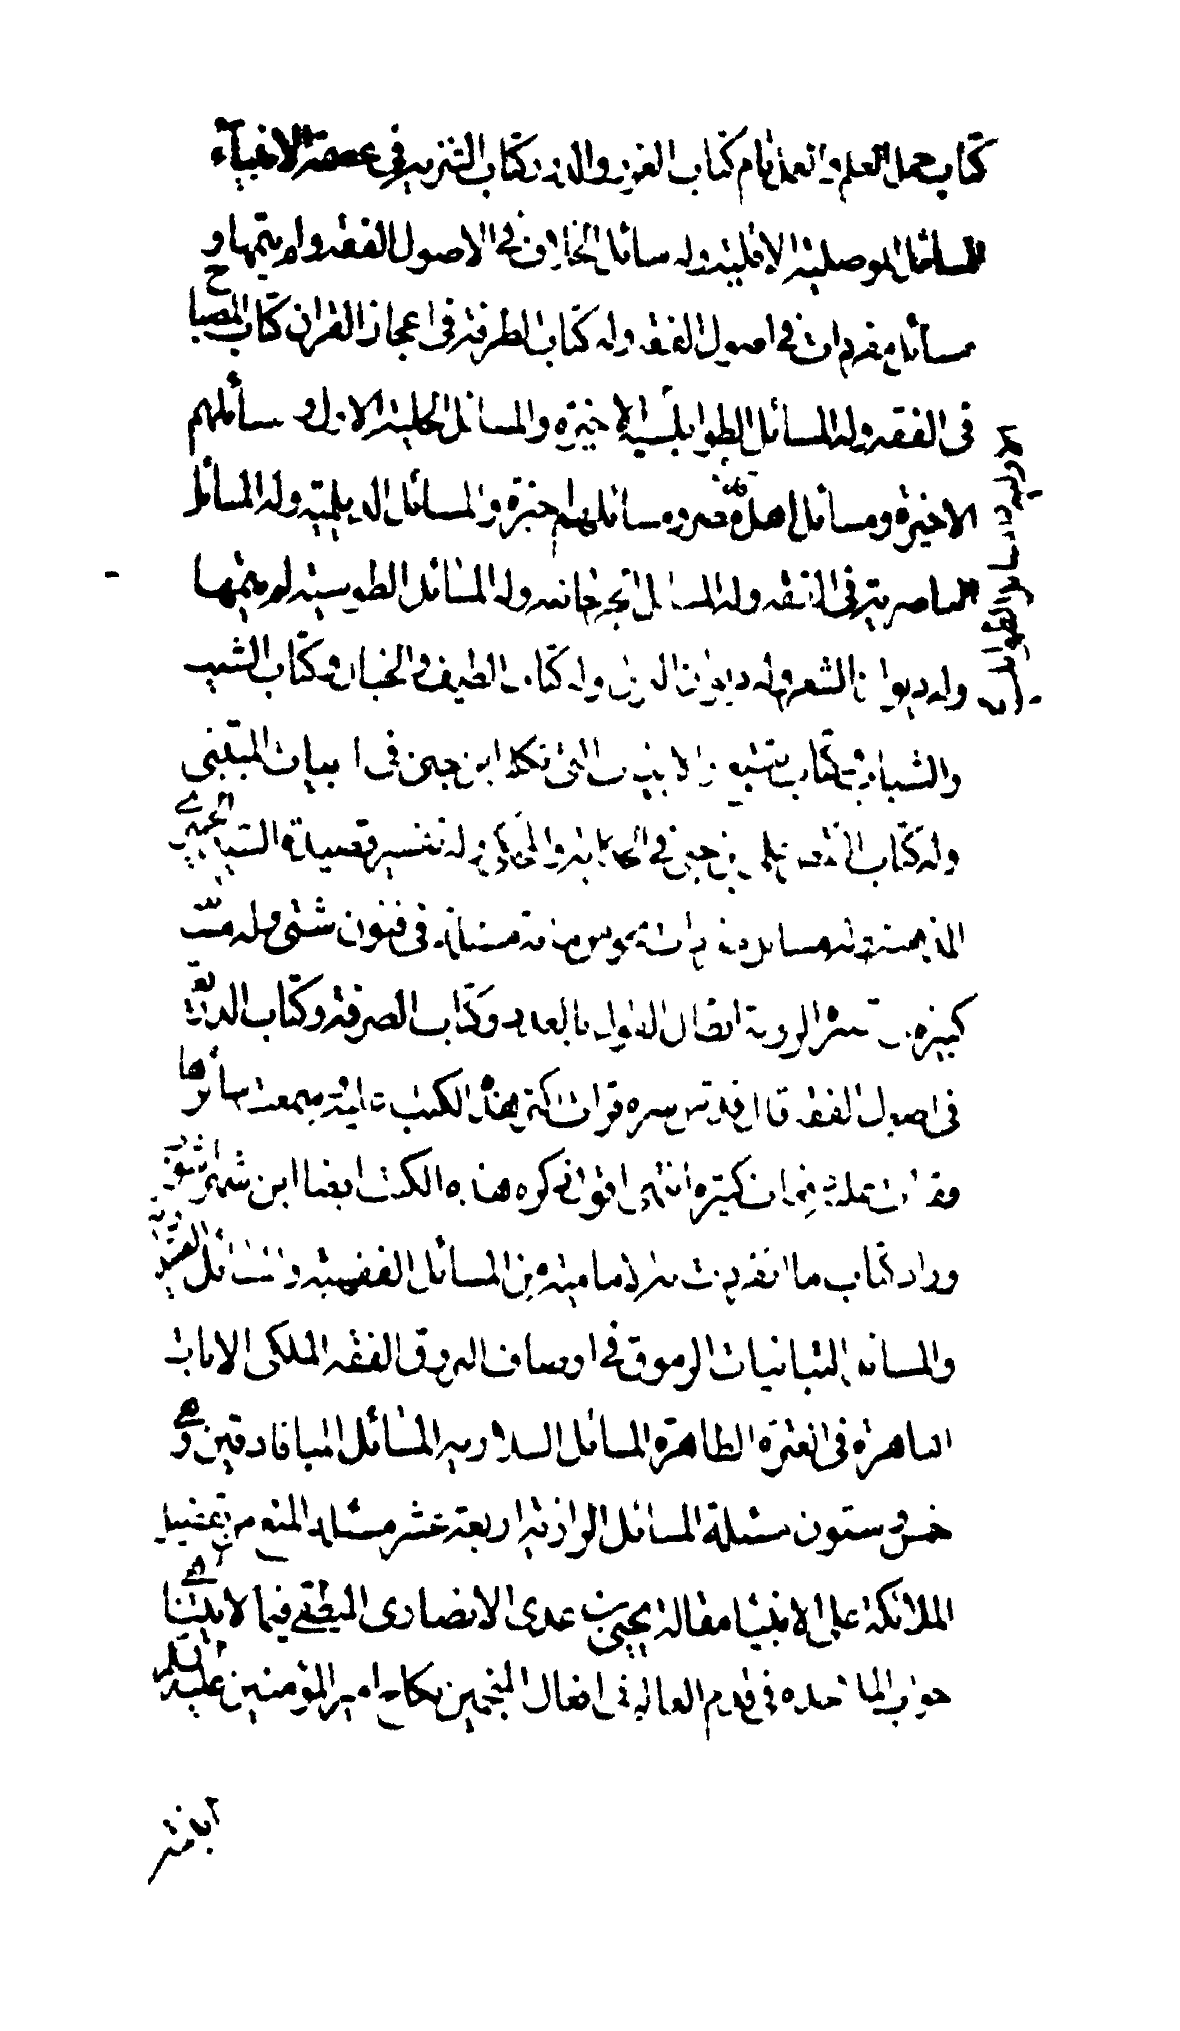 كتاب جمل العلم والعمل تام كتاب الغرر والدرر كتاب التنزيه في عصمة الانبياء
المسائل الموصلية الاولة وله مسائل الخلاف في الاصول الفقه ولم يتمها و
مسائل مفردات في اصول الفقه وله كتاب الطرفة في اعجاز القران كتاب المصباح
في الفقه وله المسائل الطرابلسية الاخيرة والمسائل الحلبية الاولى و مسائلهم
الاخيرة ومسائل اهل مصر ومسائلهم اخيرة والمسائل الديلمية وله المسائل
الناصرية في الفقه وله المسائل الجرجانية وله المسائل الطوسية لم يتمها
وله ديوان الشعر وله ديوان وله كتاب الطيف والخيال وكتاب الشيب
والشباب كتاب تتبع الابيات التى تكلم ابن جني في ابيات المتنبي
وله كتاب النقض على بن جني في الحكاية والمحكي وله تفسير قصيدة السيد الحميري
المذهبة وله مسائل مفردات نحو من ماية مسئلة في فنون شتى وله مسائل
كثيرة في نصر الروية ابطال القول بالعدد وكتاب الصرفة وكتاب الذريعة
في اصول الفقه قال قدس سره قرات اكثر هذه الكتب عليه وسمعت سائرها
وقرات عليه دفعات كثيرة انتهى اقول ذكره هذه الكتب ايضا ابن شهراشوب
وزاد كتاب ما انفردت به الامامية من المسائل الفقهية والمسائل
والمسائل التبانيات المرموق في اوصاف البروق الفقه الملكى الايات
الباهرة في العترة الطاهرة المسائل السلارية المسائل الميافارقين وهي
خمس وستون مسئلة المسائل الرازية اربعة عشر مسئلة المنع من تفضيل
الملائكة على الانبياء مقالة يحيى بن عدى الانصارى المنطقي فيما لا يتناهى
جواب الملاحدة في قدم العالم في افعال المنجمين نكاح امير المؤمنين عليه السلم
ابنته